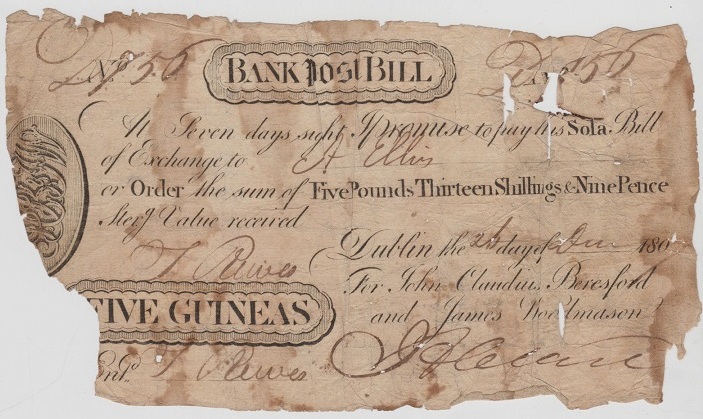 No. 756 BANK post BILL No. 756
At Seven days sight I promise to pay this Sola Bill
of Exchange to A Ellis
or Order the sum of Five Pounds Thirteen Shillings & Nine Pence
Sterg. Value received
Dublin the day of 180
For John Claudius Beresford
and James Woodmason
FIVE GUINEAS
Entd.